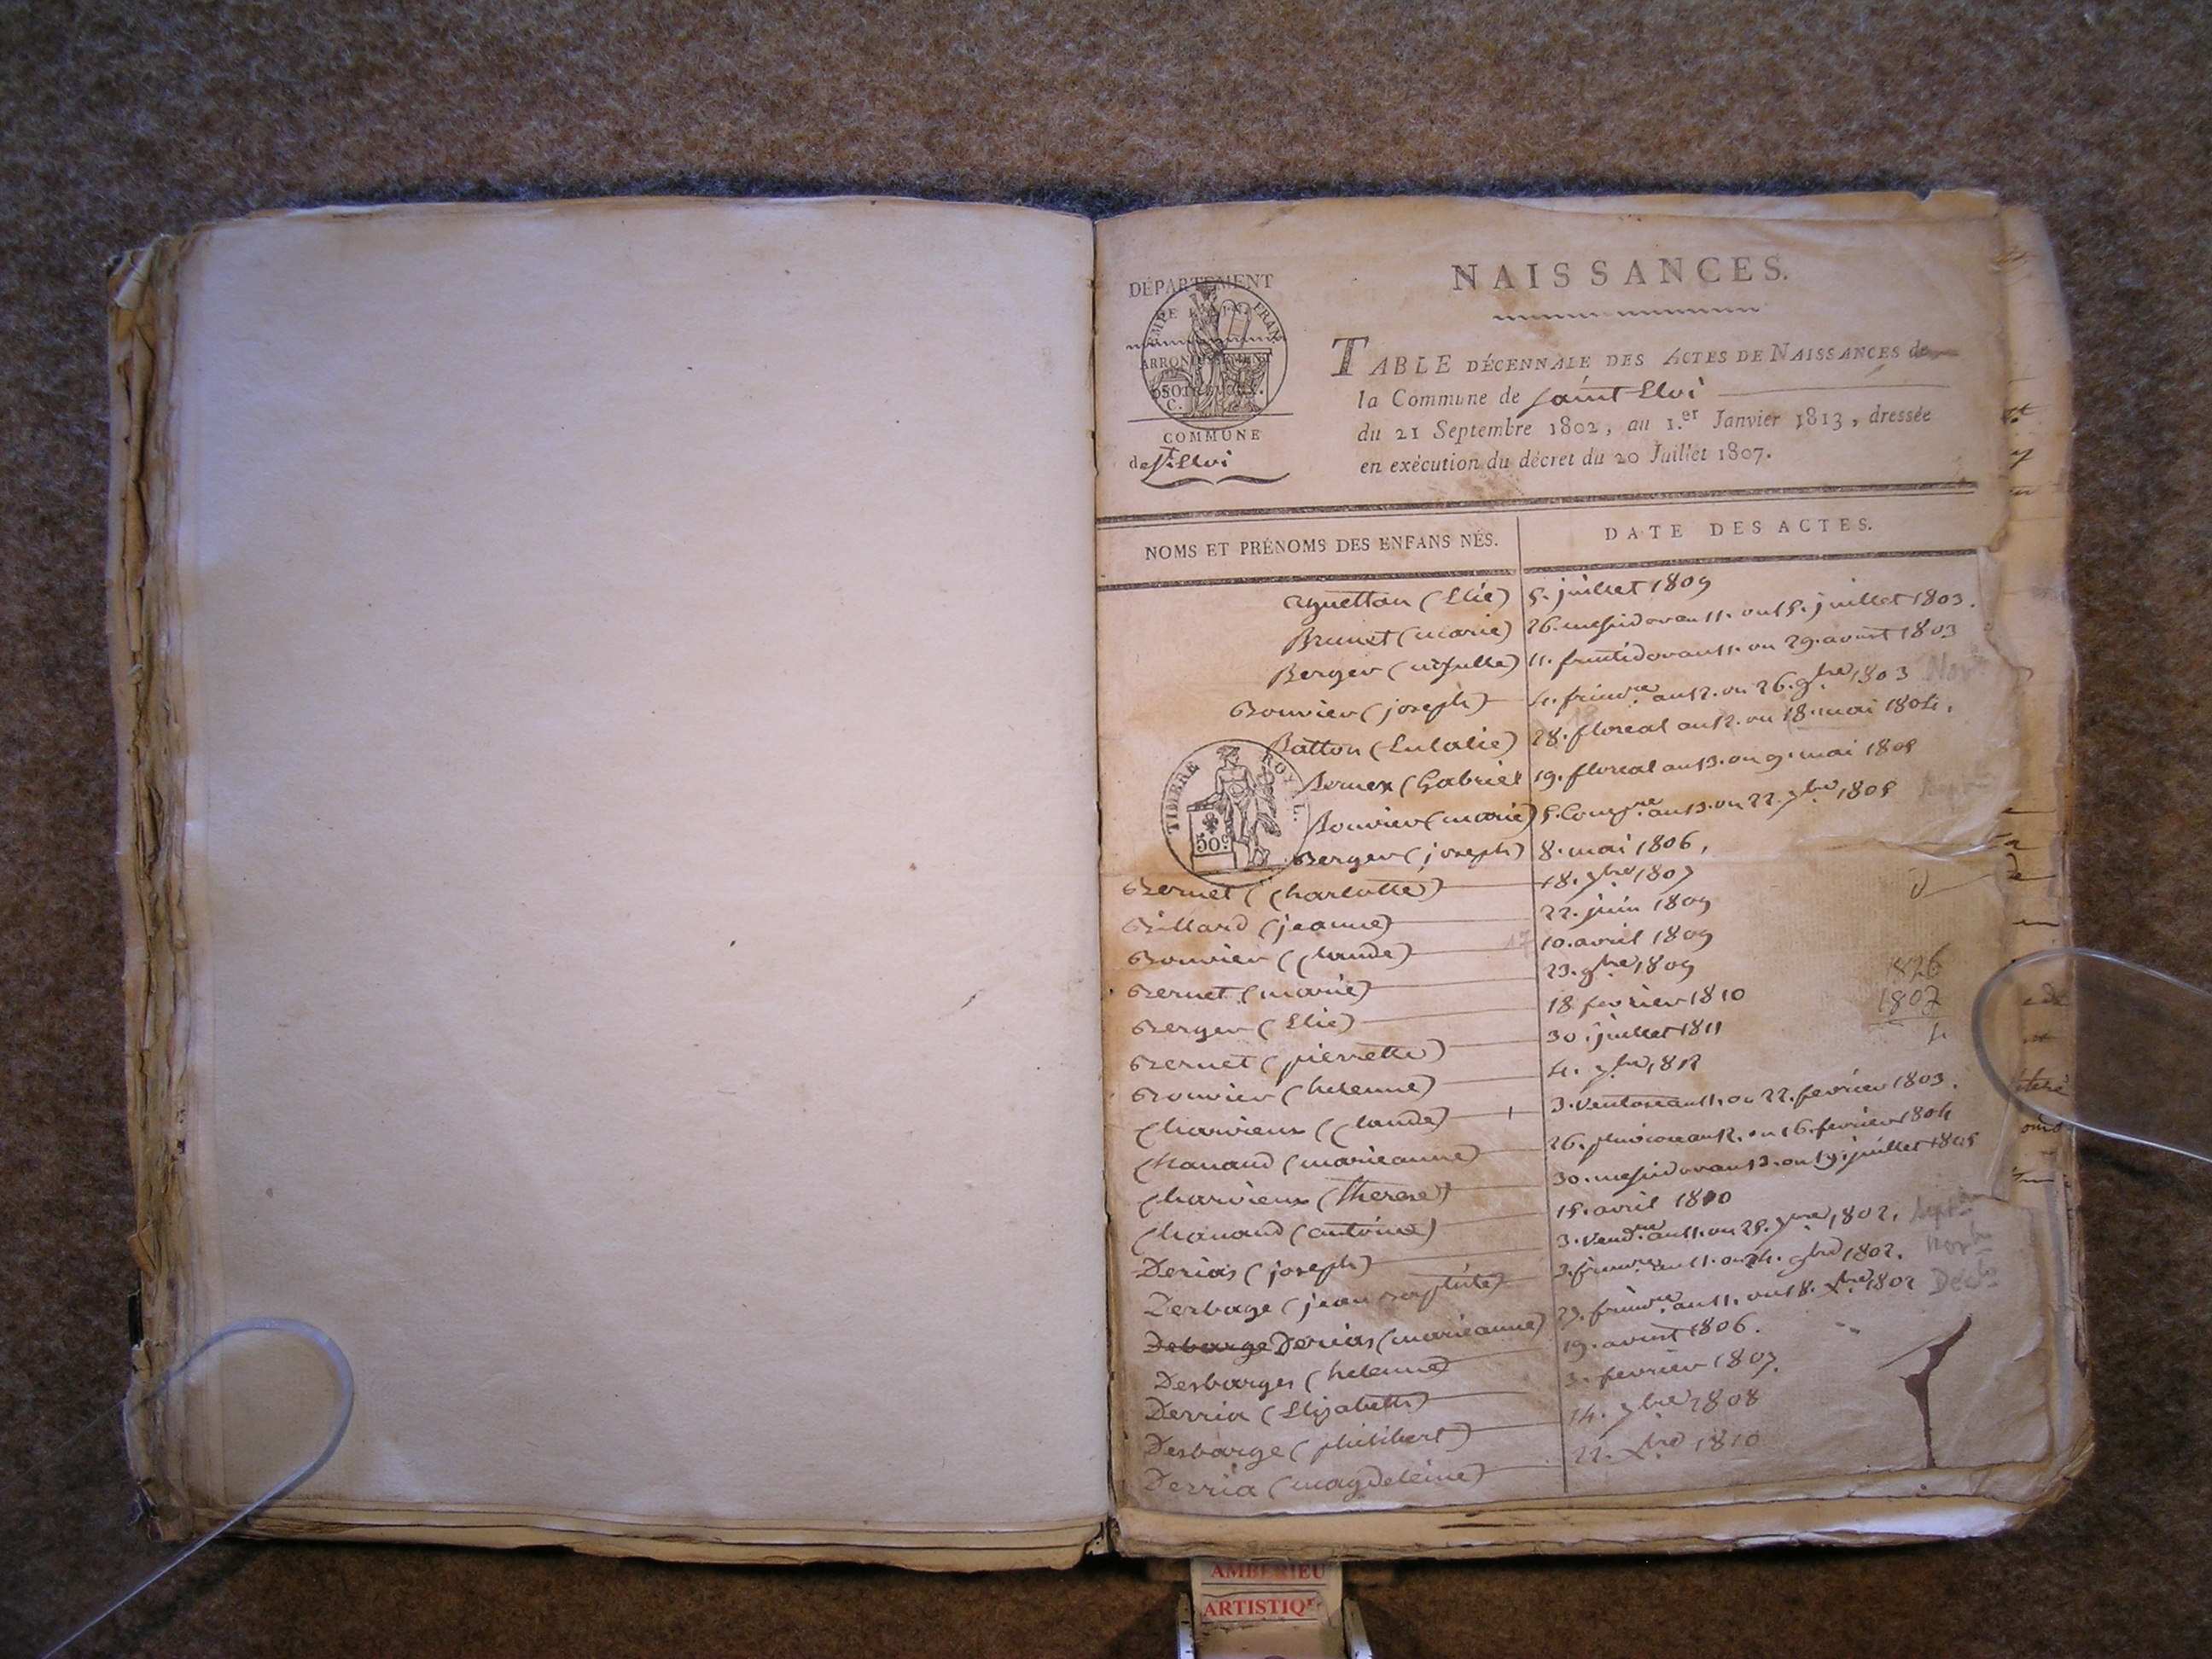 NAISSANCES.
DÉPARTEMENT
DE L'AIN.
EMPE FRAN
ARRONDISSEMENT
50
C.
COMMUNE
de St. Eloi
TABLE DÉCENNALE DES ACTES DE NAISSANCES de
la Commune de Saint Eloi
du 21 Septembre 1802, au 1.er Janvier 1813, dressée
en exécution du décret du 20 Juillet 1807.
NOMS ET PRÉNOMS DES ENFANS NÉS. DATE DES ACTES.
(Elie) 5. juillet 1809
Brunet (marie) 26. messidor an 11. ou 15. juillet 1803.
Berger (ursulle) 11. fructidor an 11. ou 29. aoust 1803
Bouvier (joseph) 4. frimre. an 12. ou 26. 9bre. 1803 Nov
Batton (Eulalie) 28. floreal an 12. ou 18. mai 1804.
Bernex (Gabriel 19. floreal an 13. ou 9. mai 1805
TIMBRE ROYAL.
50c
Bouvier (marie) 5. Compre. an 13. ou 22. 7bre 1805
Berger (joseph) 8. mai 1806.
Bernet (Charlotte) 18. 7bre 1807
Billard (jeanne) 22. juin 1809
Bouvier (Claude) 17 10. avril 1809
Bernet (marie) 23. 9bre 1809
Berger (Elie) 18 fevrier 1810
1826
1807
Bernet (pierrette) 30. juillet 1811
Bouvier (helenne) 4. 7bre 1812
Charvieux (Claude) 3. ventose an 11. ou 22. fevrier 1803.
Chanaud (marieanne) 26. pluviose an 12. ou 16. fevrier 1804
Charvieux (therese) 30. messidor an 13. ou 19. juillet 1805
Chanaud (antoine) 15. avril 1810
Derias (joseph) 3. Vendre. an 11. ou 25. 7bre 1802. Sept
Desbage (jean baptiste) 3. frimre. an 11. ou 24. 9bre 1802. Nov
Debarge Derias (marieanne) 27. frimre. an 11. ou 18. Xbre. 1802 Déc
Desbarges (helenne) 19. aoust 1806.
Derria (Elizabeth) 3. fevrier 1807.
Desbarge (philibert) 14. 7bre 1808
Derria (magdeleine) 22. Xbre 1810
AMBERIEU
ARTISTIQ